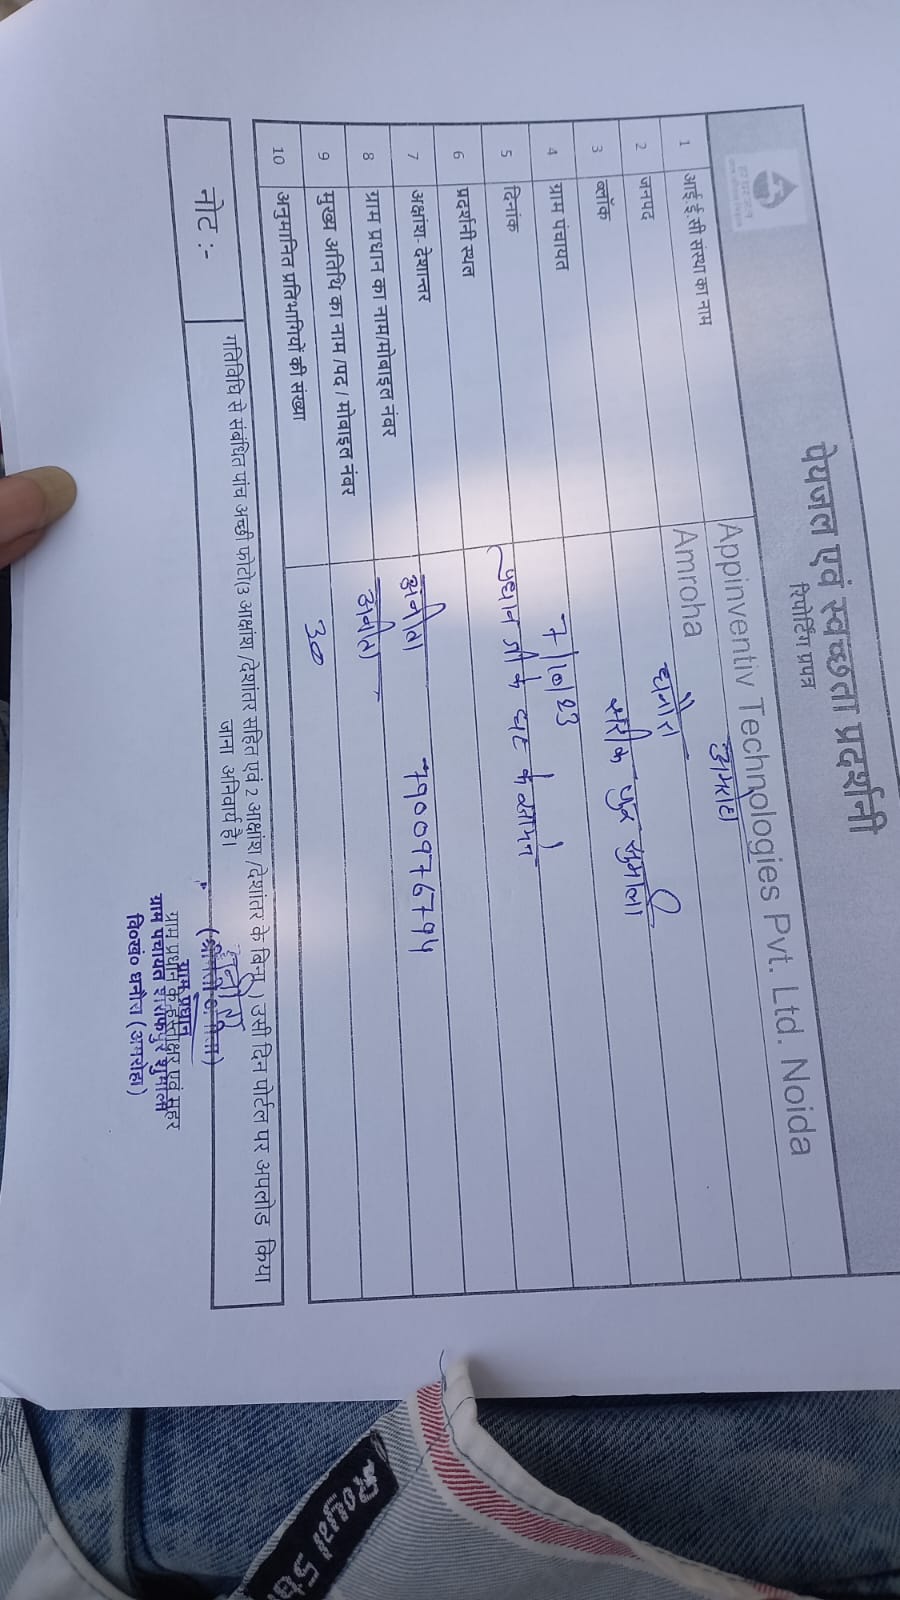 पेयजल एवं स्वच्छता प्रदर्शनी
रिपोर्टिंग प्रपत्र
1 आई.ई.सी संस्था का नाम Appinventiv Technologies Pvt. Ltd. Noida
2 जनपद Amroha अमरोहा
3 ब्लॉक धनौरा
4 ग्राम पंचायत शुमाली
5 दिनांक 7/10/23
6 प्रदर्शनी स्थल प्रधान जी के घर के सामने
7 अक्षांश- देशान्तर
8 ग्राम प्रधान का नाम/मोबाइल नंबर अनीता 7900976794
9 मुख्य अतिथि का नाम /पद / मोबाइल नंबर अनीता
10 अनुमानित प्रतिभागियों की संख्या 30
नोट :- गतिविधि से संबंधित पांच अच्छी फोटो(3 आक्षांश /देशांतर सहित एवं 2 आक्षांश /देशांतर के बिना ) उसी दिन पोर्टल पर अपलोड किया
जाना अनिवार्य है।
अनीता
ग्राम प्रधान
ग्राम प्रधान के हस्ताक्षर एवं मुहर
ग्राम पंचायत शुमाली
वि०खं० धनौरा (अमरोहा)
Royal